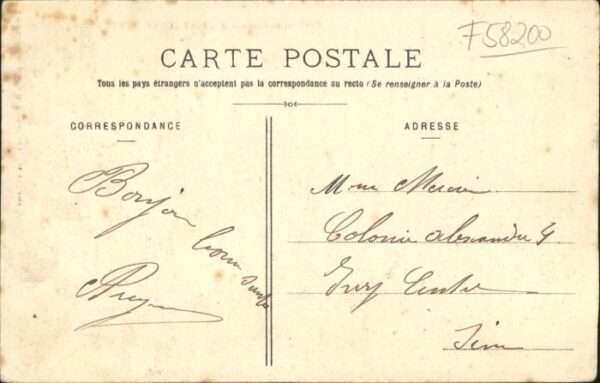 F58200
CARTE POSTALE
Tous les pays étrangers n'acceptent pas la correspondance au recto (Se renseigner à la Poste)
CORRESPONDANCE
ADRESSE
Bonjour
Mme Mercier
Colonie Alexandre
Ivry Centre
Seine